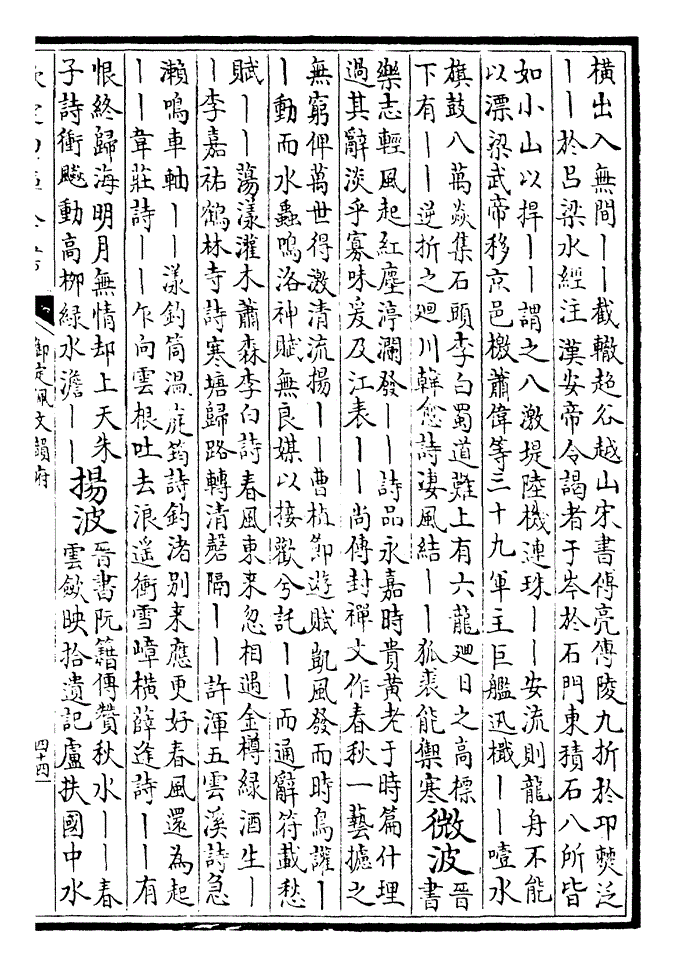 橫出入無間丨丨截轍超谷越山宋書傅亮傳陵九折於邛僰泛
丨丨於呂梁水經注漢安帝令謁者于岑於石門東積石八所皆
如小山以捍丨丨謂之八激堤陸機連珠丨丨安流則龍舟不能
以漂梁武帝移京邑檄蕭偉等三十九軍主巨艦迅檝丨丨噎水
旗鼓八萬焱集石頭李白蜀道難上有六龍廻日之高標
下有丨丨逆折之廻川韓愈詩淒風結丨丨狐裘能禦寒
微波
晉
書
樂志輕風起紅塵渟瀾發丨丨詩品永嘉時貴黃老于時篇什理
過其辭淡乎寡味爰及江表丨丨尚傳封禪文作春秋一藝攄之
無窮俾萬世得激清流揚丨丨曹植節遊賦凱風發而時鳥讙丨
丨動而水蟲鳴洛神賦無良媒以接歡兮託丨丨而通辭符載愁
賦丨丨蕩漾灌木蕭森李白詩春風東來忽相過金樽綠酒生丨
丨李嘉祐鶴林寺詩寒塘歸路轉清磬隔丨丨許渾五雲溪詩急
瀨鳴車軸丨丨漾釣筒溫庭筠詩釣渚別來應更好春風還為起
丨丨韋莊詩丨丨乍向雲根吐去浪遙衝雪嶂橫薛逢詩丨丨有
恨終歸海明月無情却上天朱
子詩衝飈動高柳綠水澹丨丨
揚波
晉書阮籍傳贊秋水丨丨春
雲斂映拾遺記盧扶國中水
御定佩文韻府
四十四